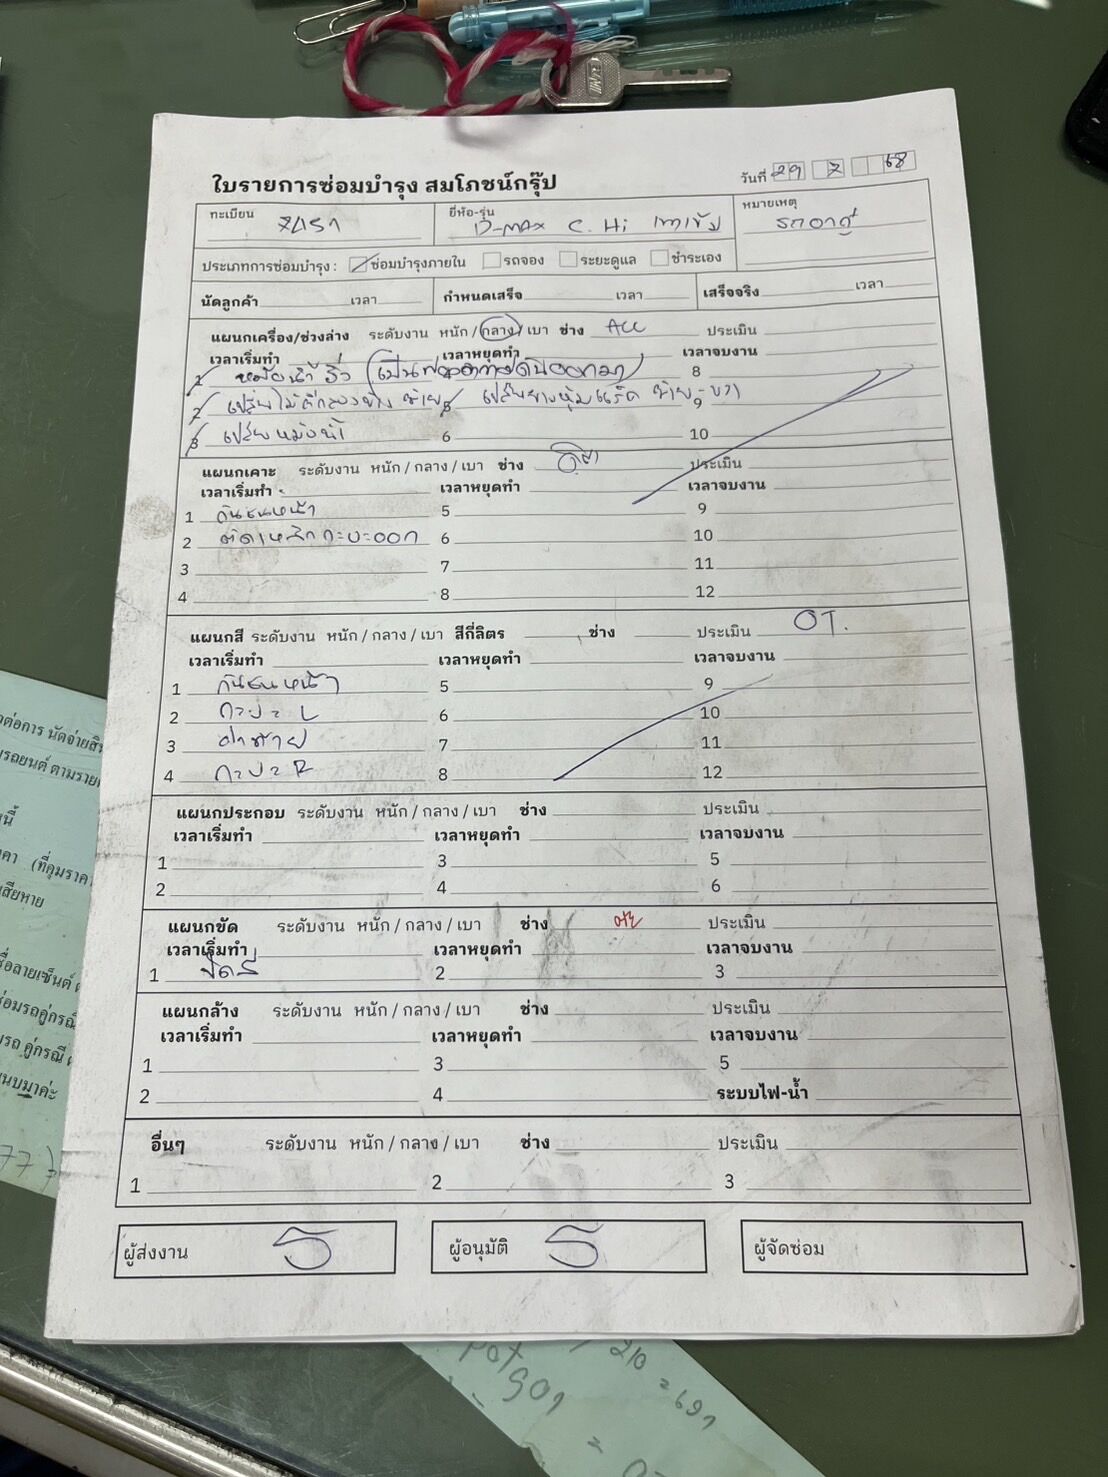 ใบรายการซ่อมบำรุง สมโภชน์กรุ๊ป
วันที่ 29 7 68
ทะเบียน
ยี่ห้อ-รุ่น D-MAX C. Hi เทาเข้ม
หมายเหตุ
ประเภทการซ่อมบำรุง : ซ่อมบำรุงภายใน รถจอง ระยะดูแล ชำระเอง
นัดลูกค้า เวลา กำหนดเสร็จ เวลา เสร็จจริง เวลา
แผนกเครื่อง/ช่วงล่าง ระดับงาน หนัก / กลาง / เบา ช่าง ประเมิน
เวลาเริ่มทำ เวลาหยุดทำ เวลาจบงาน
1 หม้อน้ำ รั่ว 8
2 ซ้าย เปลี่ยนยางหุ้มแร็ค ซ้าย-ขวา 9
3 เปลี่ยนหม้อน้ำ 6 10
แผนกเคาะ ระดับงาน หนัก / กลาง / เบา ช่าง ประเมิน
เวลาเริ่มทำ เวลาหยุดทำ เวลาจบงาน
1 กันชนหน้า 5 9
2 ตัดเหล็กกระบะออก 6 10
3 7 11
4 8 12
แผนกสี ระดับงาน หนัก / กลาง / เบา สีกี่ลิตร ช่าง ประเมิน OT.
เวลาเริ่มทำ เวลาหยุดทำ เวลาจบงาน
1 กันชนหน้า 5 9
2 กะบะ L 6 10
3 ฝาท้าย 7 11
4 กะบะ R 8 12
แผนกประกอบ ระดับงาน หนัก / กลาง / เบา ช่าง ประเมิน
เวลาเริ่มทำ เวลาหยุดทำ เวลาจบงาน
1 3 5
2 4 6
แผนกขัด ระดับงาน หนัก / กลาง / เบา ช่าง ประเมิน
เวลาเริ่มทำ เวลาหยุดทำ เวลาจบงาน
1 ขัดสี 2 3
แผนกล้าง ระดับงาน หนัก / กลาง / เบา ช่าง ประเมิน
เวลาเริ่มทำ เวลาหยุดทำ เวลาจบงาน
1 3 5
2 4 ระบบไฟ-น้ำ
อื่นๆ ระดับงาน หนัก / กลาง / เบา ช่าง ประเมิน
1 2 3
ผู้ส่งงาน ผู้อนุมัติ ผู้จัดซ่อม